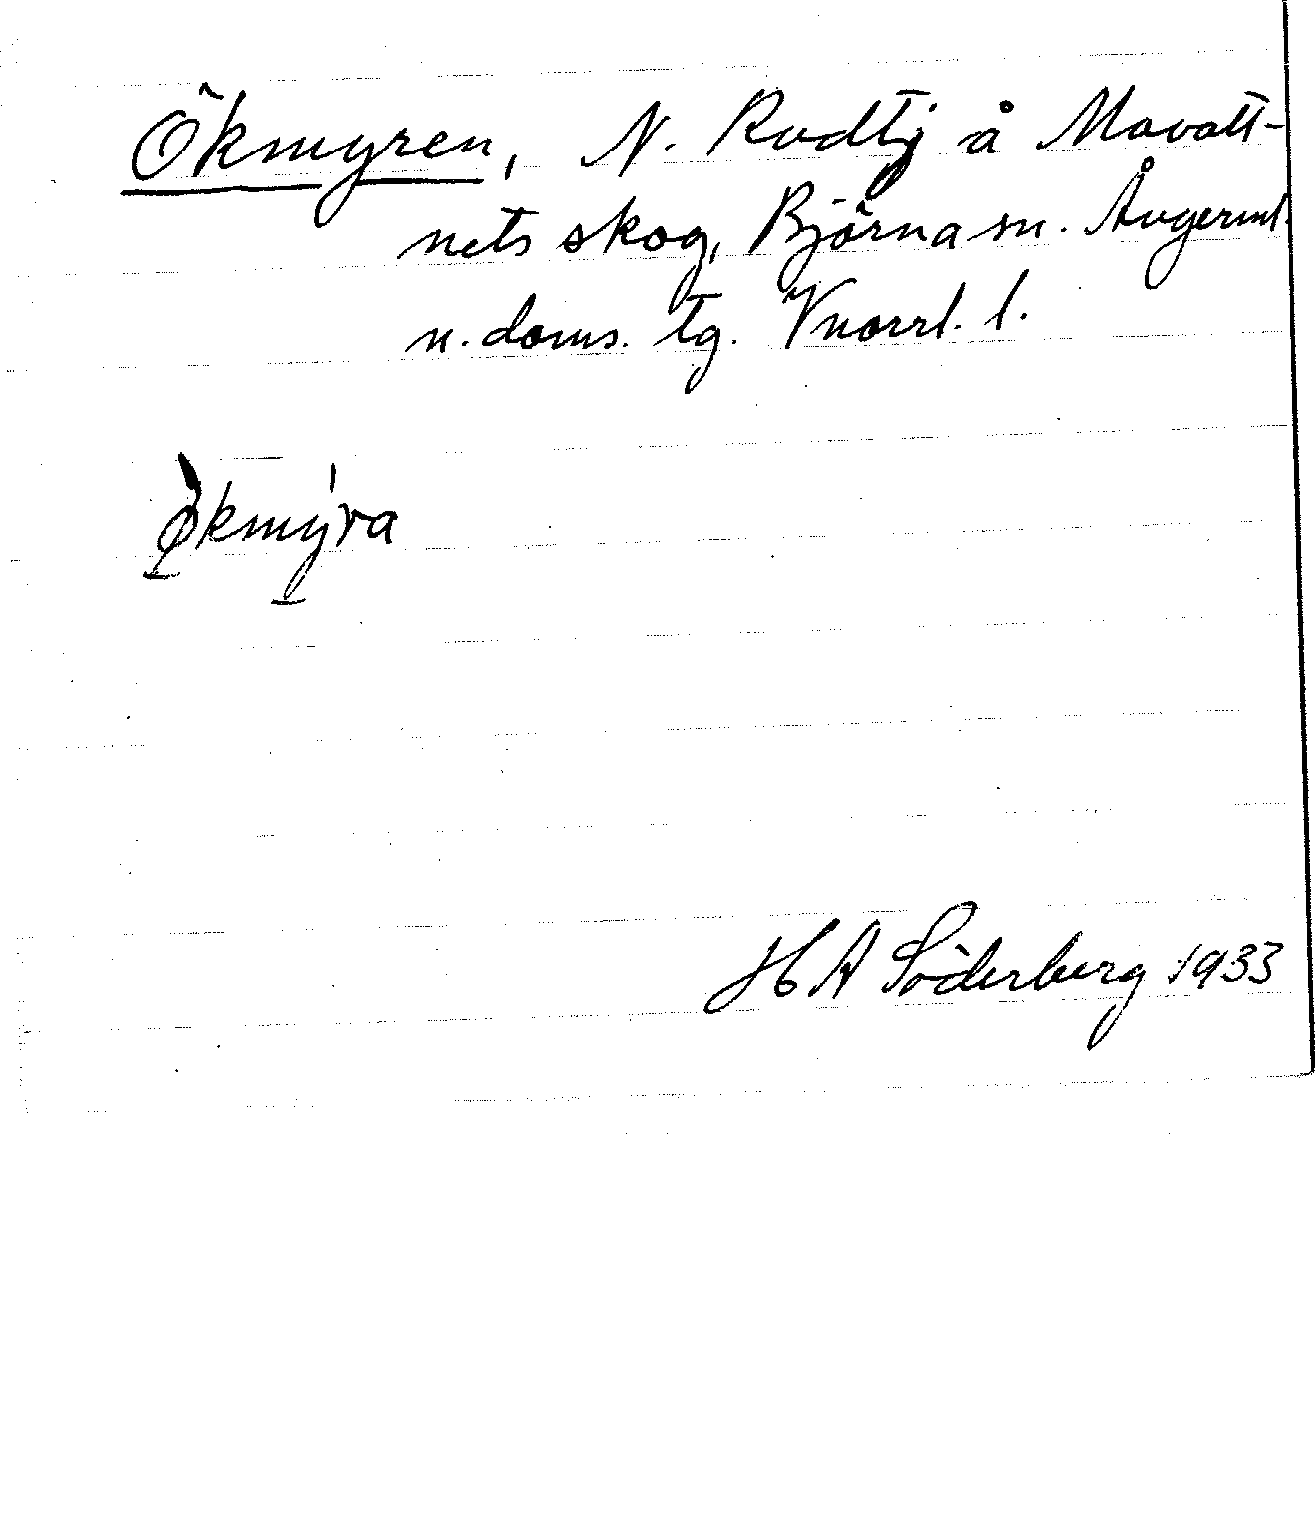 Ökmyren, N. Rudtj å Mavatt-
nets skog, Björna sn. Ångerml.
n. doms. tg. Vnorrl. l.
økmyra
H A Söderberg 1933